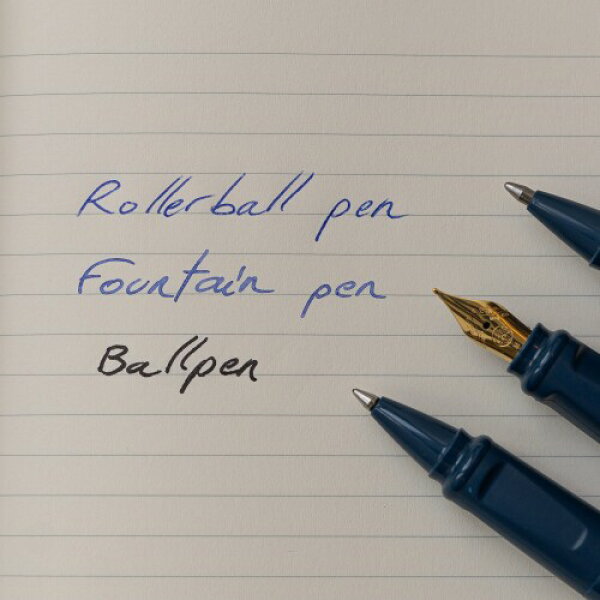 Rollerball pen
Fountain pen
Ballpen